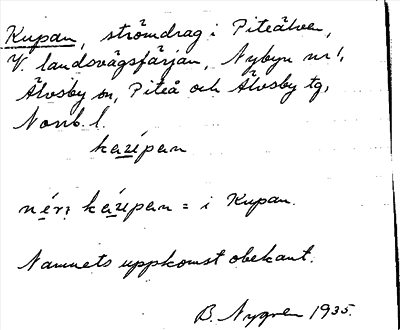 Kupan, strömdrag i Piteälven,
V. landsvägsfärjan, Nybyn nr 1,
Älvsby sn, Piteå och Älvsby tg,
Norrb. l.
kaúpan
nér kaúpan = i Kupan.
Namnets uppkomst obekant.
B. Nygren 1935.